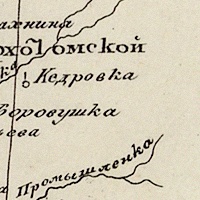 ахнина
рхотомской
ка
Кедровка
Боровушка
ева
Промышленка